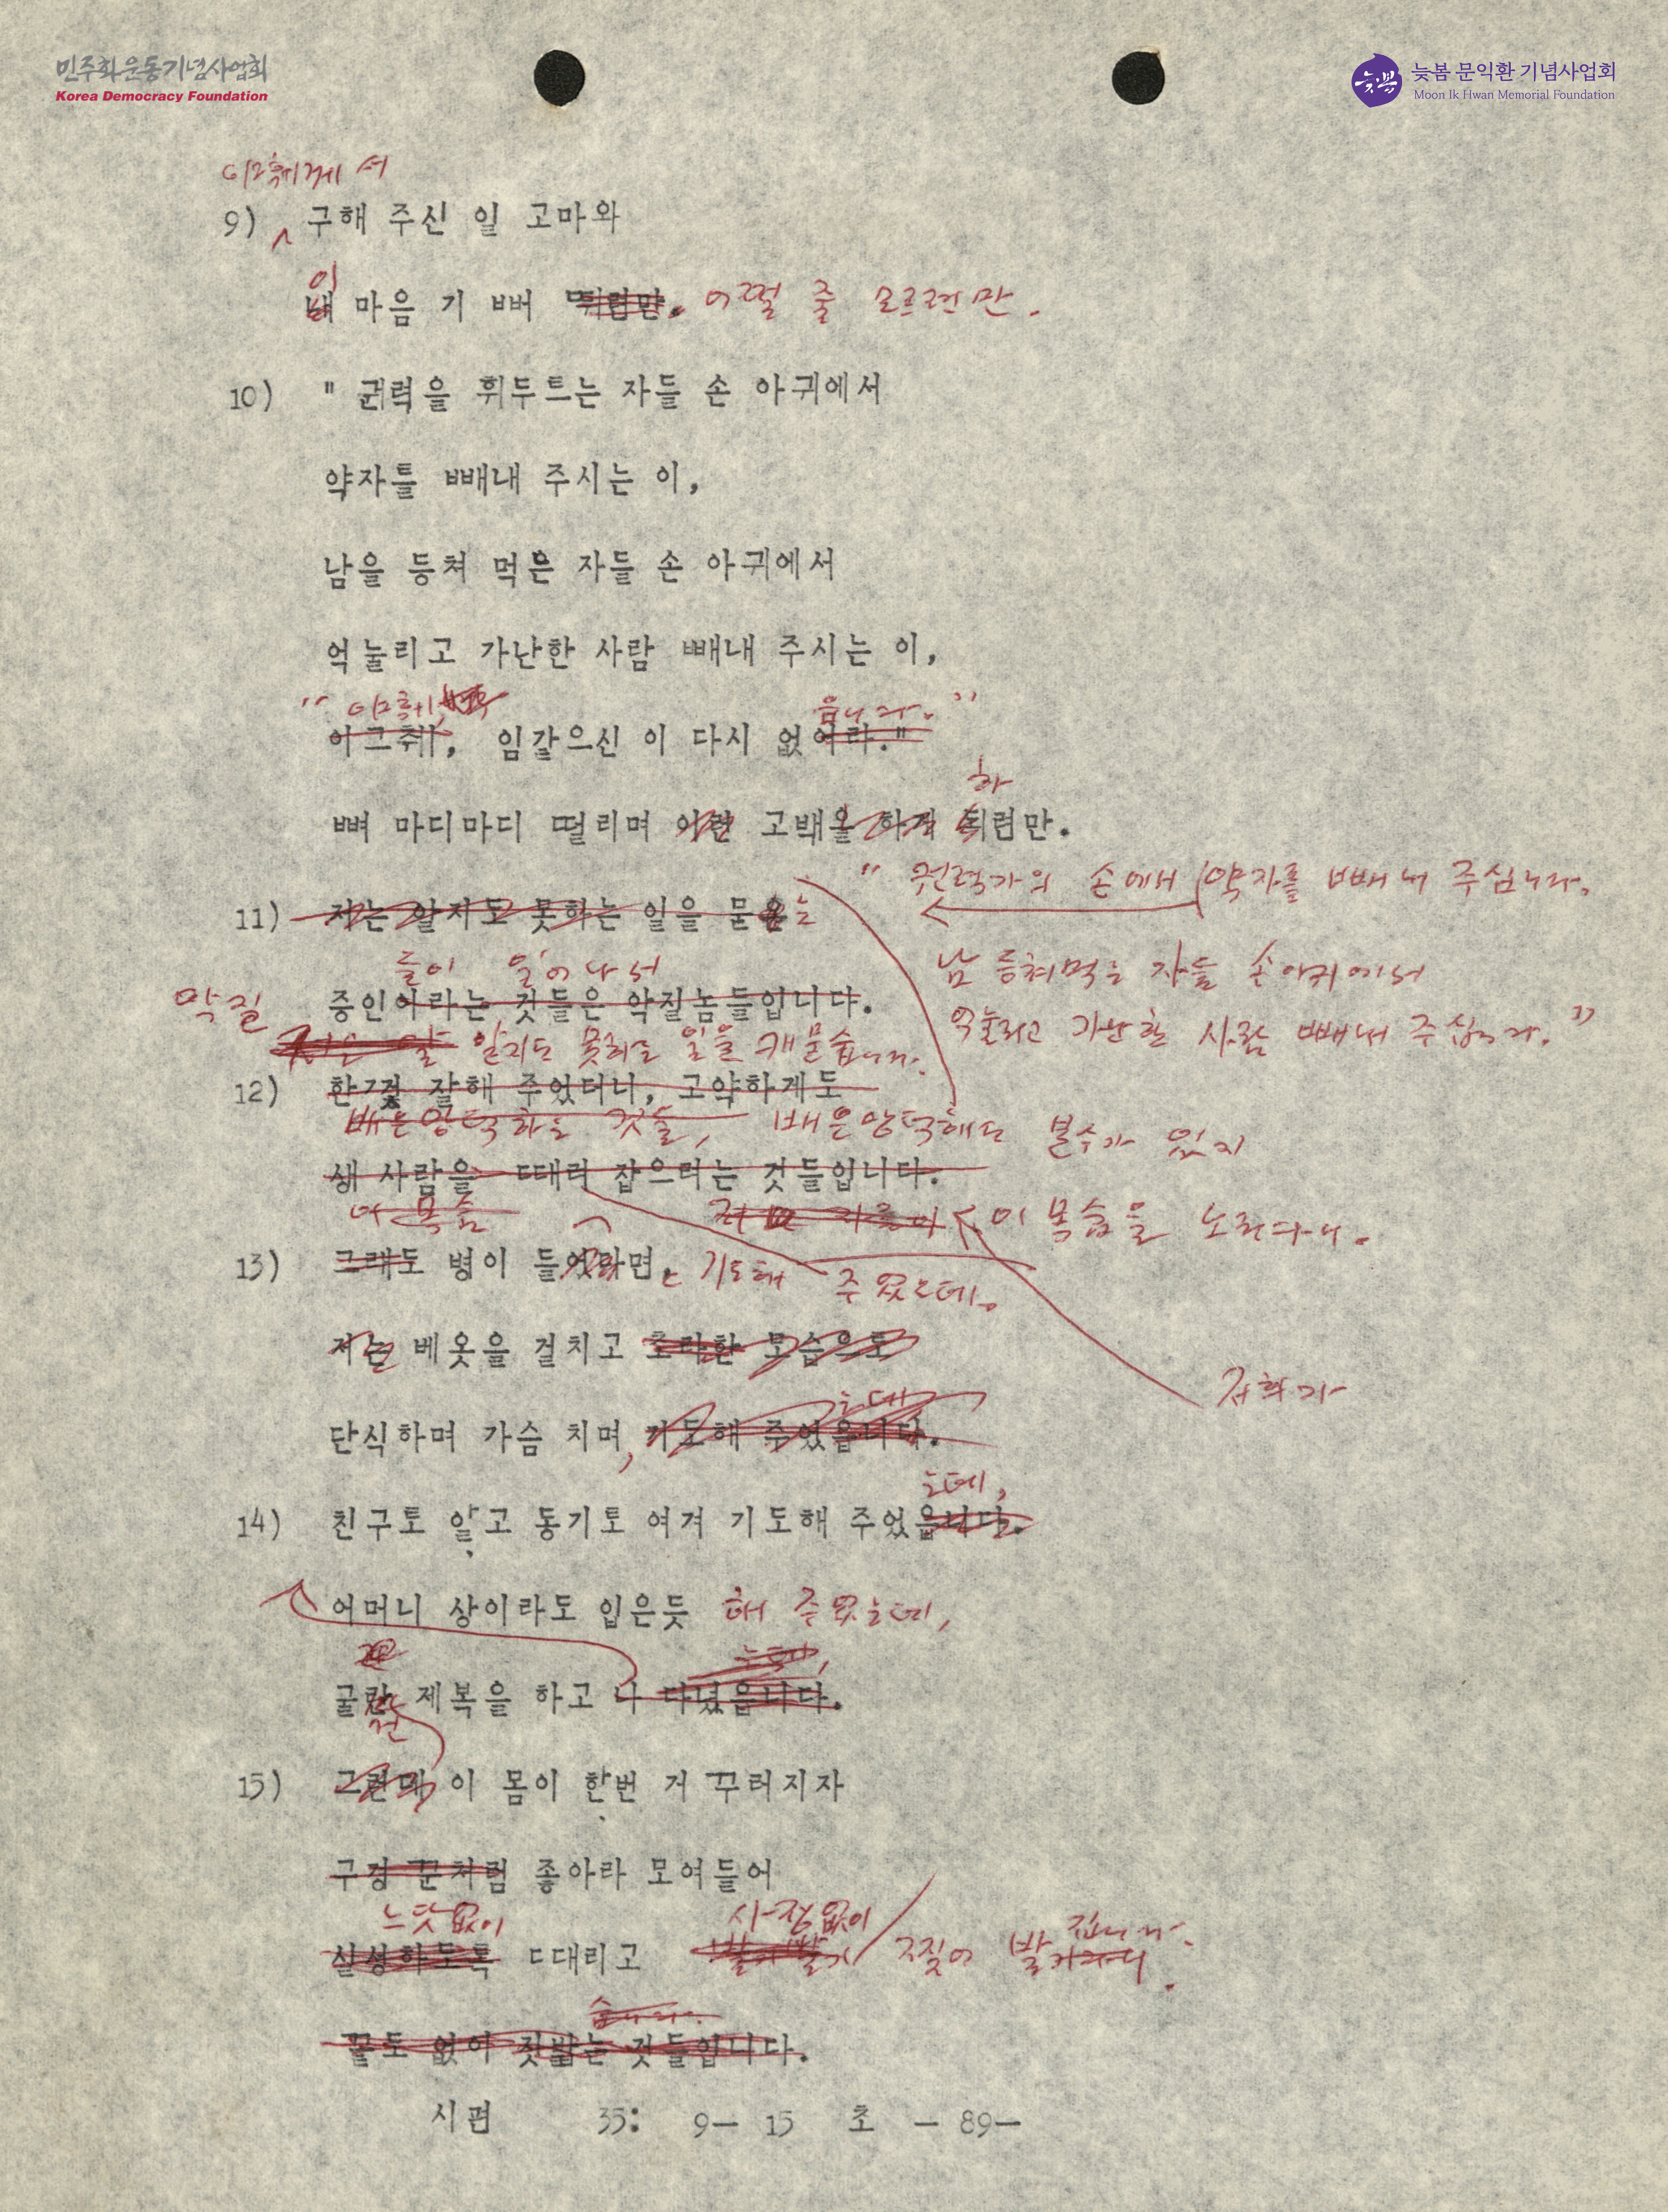 민주화운동기념사업회
Korea Democracy Foundation
늦봄
늦봄 문익환 기념사업회
Moon Ik Hwan Memorial Foundation
야훼께서
9) 구해 주신 일 고마와
이
내 마음 기 뻐 뛰련만. 어쩔 줄 모르련만.
10) " 권력을 휘두르는 자들 손 아귀에서
약자를 빼내 주시는 이,
남을 등쳐 먹은 자들 손 아귀에서
억눌리고 가난한 사람 빼내 주시는 이,
" 야훼, 읍니다. "
야그훼, 임같으신 이 다시 없어라."
하
뼈 마디마디 떨리며 이런 고백을 하게 되련만.
" 권력가의 손에서 약자를 빼내 주십니다.
11) 저는 알지도 못하는 일을 묻는
남 등쳐먹는 자들 손아귀에서
들이 일어나서
악질 증인이라는 것들은 악질놈들입니다.
억눌리고 가난한 사람 빼내 주십니다."
알지도 못하는 일을 캐묻습니다.
12) 한껏 잘해 주었더니, 고약하게도
배은망덕하는 것들, 배은망덕해도 분수가 있지
생 사람을 때려 잡으려는 것들입니다.
이 목숨 이 목숨을 노리다니.
13) 그래도 병이 들었다면, 기도해 주었는데.
저는 베옷을 걸치고 초라한 모습으로
저희가
는데
단식하며 가슴 치며, 기도해 주었읍니다.
는데,
14) 친구로 알고 동기로 여겨 기도해 주었읍니다.
어머니 상이라도 입은듯 해 주었는데,
는데,
굴관 제복을 하고 나 다녔읍니다.
건
15) 그런데 이 몸이 한번 거 꾸러지자
구경 꾼처럼 좋아라 모여들어
느닷없이 사정없이
실성하도록 때리고 갈기갈기 찢어 발 깁니다.
습니다.
끝도 없이 짓밟는 것들입니다.
시편 35: 9- 15 초 - 89-